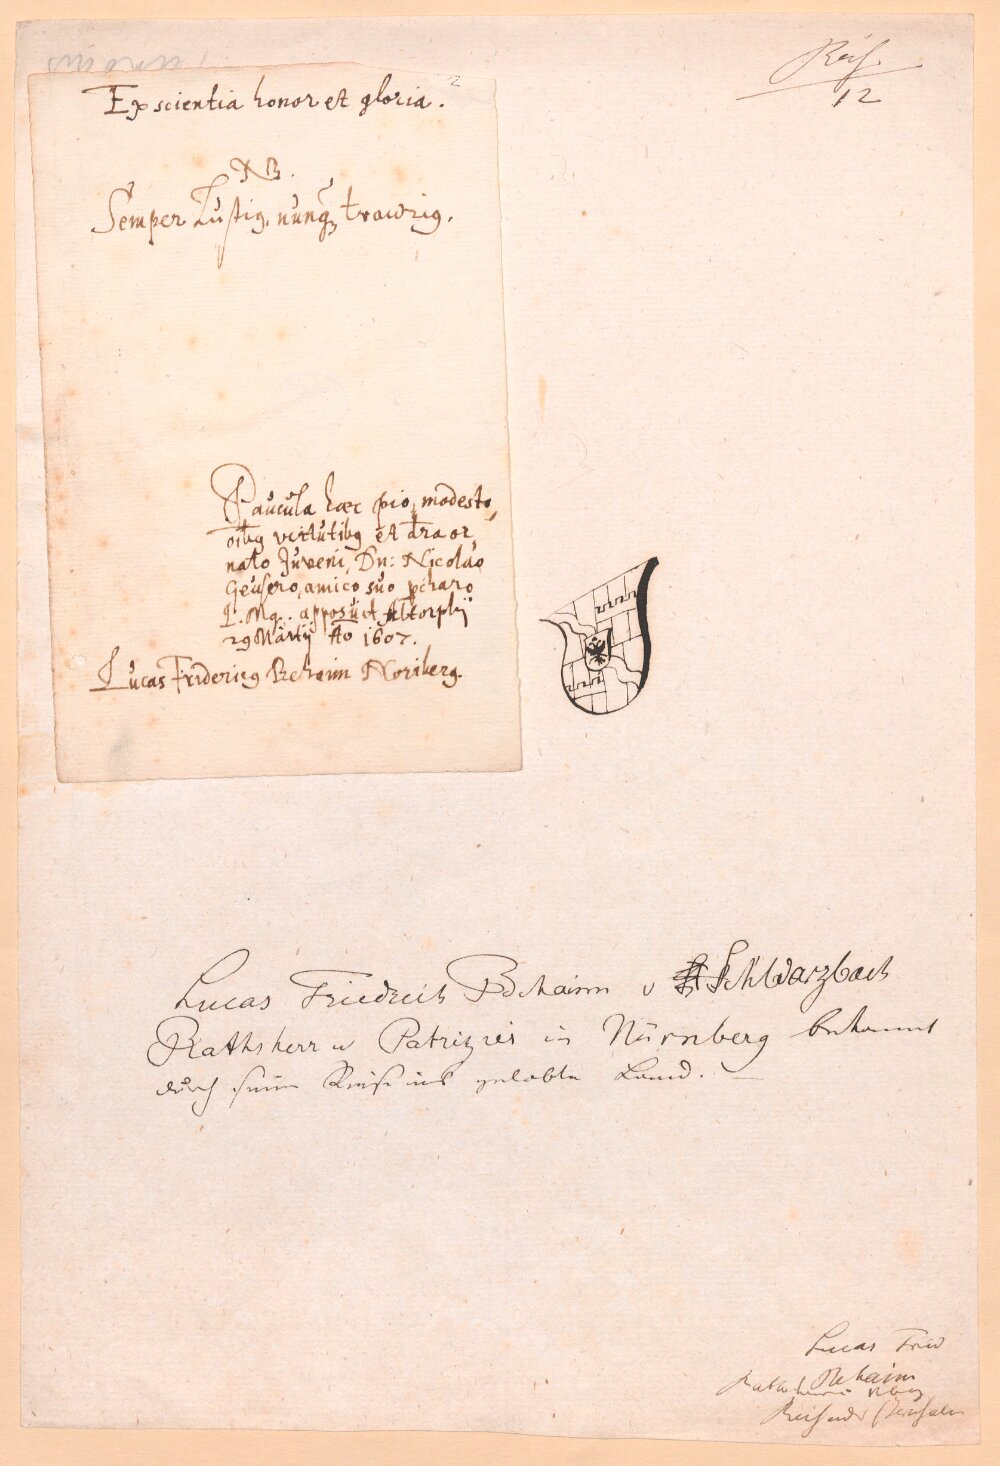 Reis.
12
2
Ex scientia honor et gloria.
NB.
Semper Lustig, nunq̃ trawrig.
Paucula haec pio, modesto,
oib9 virtutib9 et dr̄a or,
nato Juveni, Dn: Nicolao
Geusero, amico suo pcharo
L. Mq. apposuit Altorphij
29 Martij Ao 1607.
Lucas Frideric9 Behaim Noriberg.
Lucas Friedrich Behaim v Schwarzbach
Rathsherr u Patrizier in Nürnberg bekannt
durch seine Reise ins gelobte Land.
Lucas Fried
Behaim
Rathsherr Nbg
Reisender Jerusalem